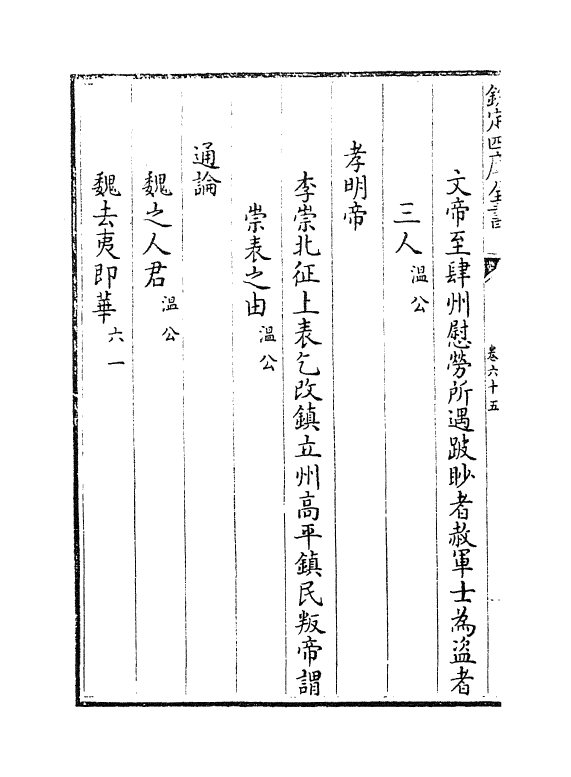 欽定四庫全書
卷六十五
文帝至肆州慰勞所遇跛眇者赦軍士為盜者
三人溫公
孝明帝
李崇北征上表乞改鎮立州高平鎮民叛帝謂
崇表之由溫公
通論
魏之人君溫公
魏去夷即華六一